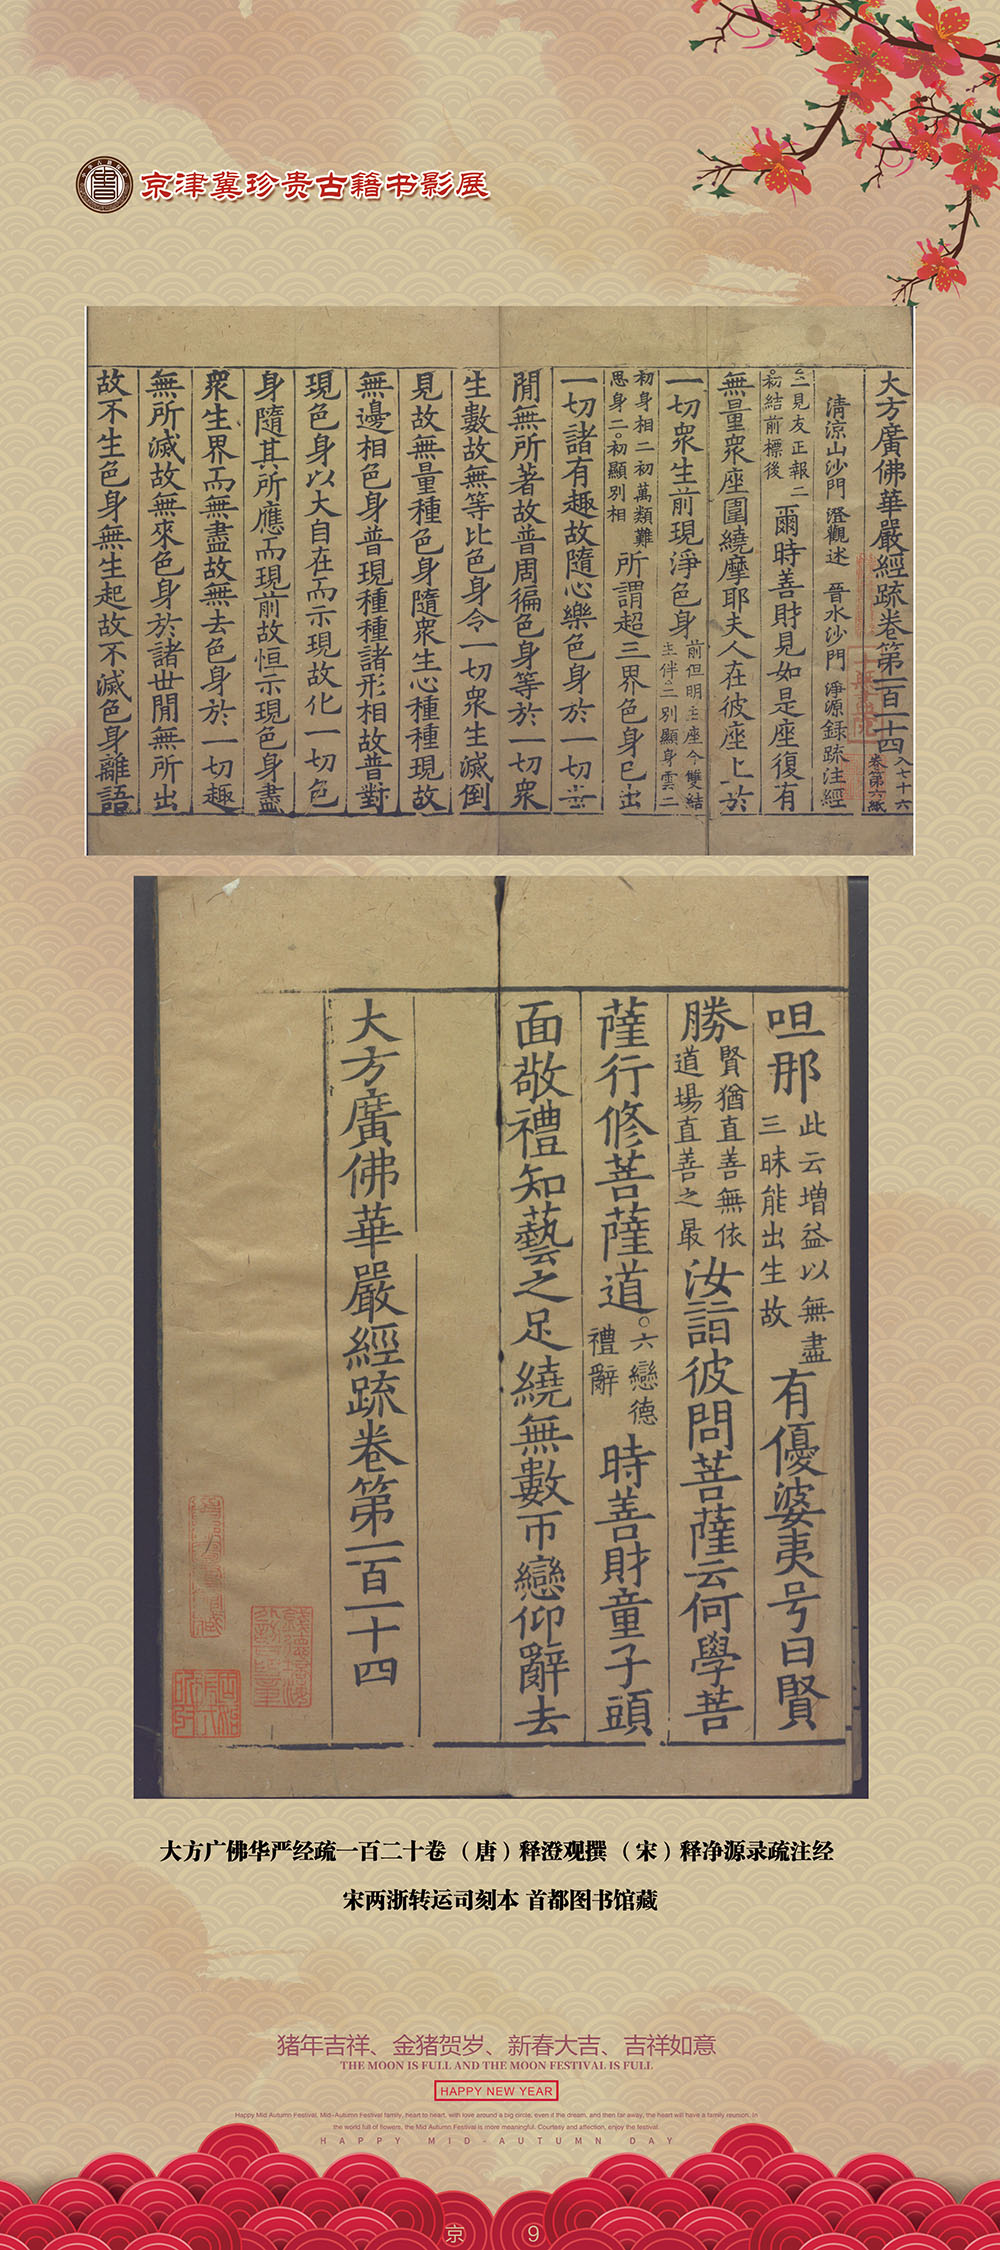 京津冀珍贵古籍书影展
大方廣佛華嚴經疏卷第一百一十四 八七十六 卷第六紙
清涼山沙門 澄觀述 晉水沙門 淨源錄疏注經
二見友正報二 初結前標後 爾時善財見如是座復有
無量眾座圍繞摩耶夫人在彼座上於
一切眾生前現淨色身 前但明主座今雙結 主伴二別顯身雲二
初身相二初萬類難 思身二初顯別相 所謂超三界色身已出
一切諸有趣故隨心樂色身於一切世
閒無所著故普周徧色身等於一切眾
生數故無等比色身令一切眾生滅倒
見故無量種色身隨眾生心種種現故
無邊相色身普現種種諸形相故普對
現色身以大自在而示現故化一切色
身隨其所應而現前故恒示現色身盡
眾生界而無盡故無去色身於一切趣
無所滅故無來色身於諸世閒無所出
故不生色身無生起故不滅色身離語
呾那 此云增益以無盡 三昧能出生故 有優婆夷号曰賢
勝 賢猶直善無依 道場直善之最 汝詣彼問菩薩云何學菩
薩行修菩薩道 六戀德 禮辭 時善財童子頭
面敬禮知藝之足繞無數帀戀仰辭去
大方廣佛華嚴經疏卷第一百一十四
大方广佛华严经疏一百二十卷 （唐）释澄观撰 （宋）释净源录疏注经
宋两浙转运司刻本 首都图书馆藏
猪年吉祥、金猪贺岁、新春大吉、吉祥如意
THE MOON IS FULL AND THE MOON FESTIVAL IS FULL
HAPPY NEW YEAR
Happy Mid Autumn Festival, Mid-Autumn Festival family, heart to heart, with love around a big circle, even if the dream, and then far away, the heart will have a family reunion. In
the world full of flowers, the Mid Autumn Festival is more meaningful. Courtesy and affection, enjoy the festival.
HAPPY MID-AUTUMN DAY
京 9